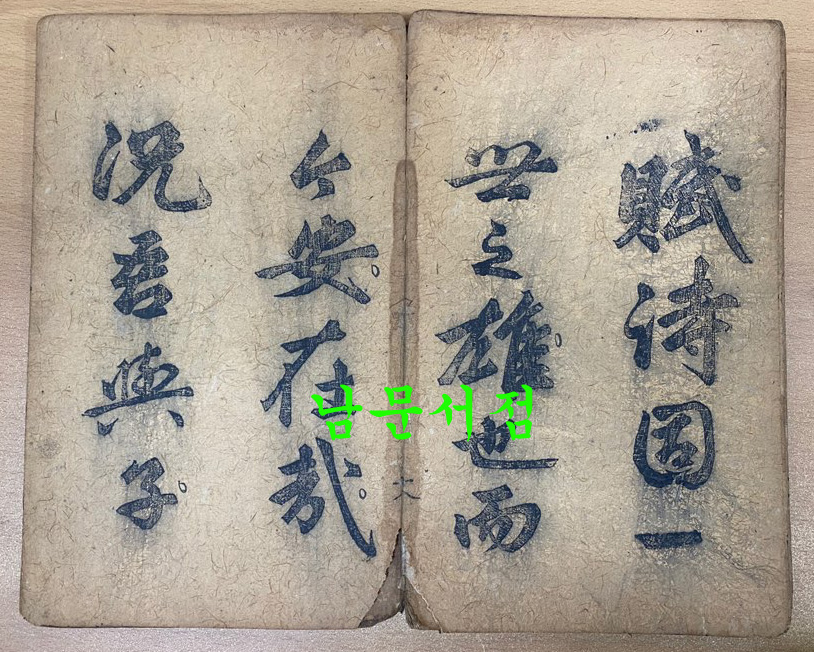 賦詩固一
世之雄也而
今安在哉
况吾與子
남문서점